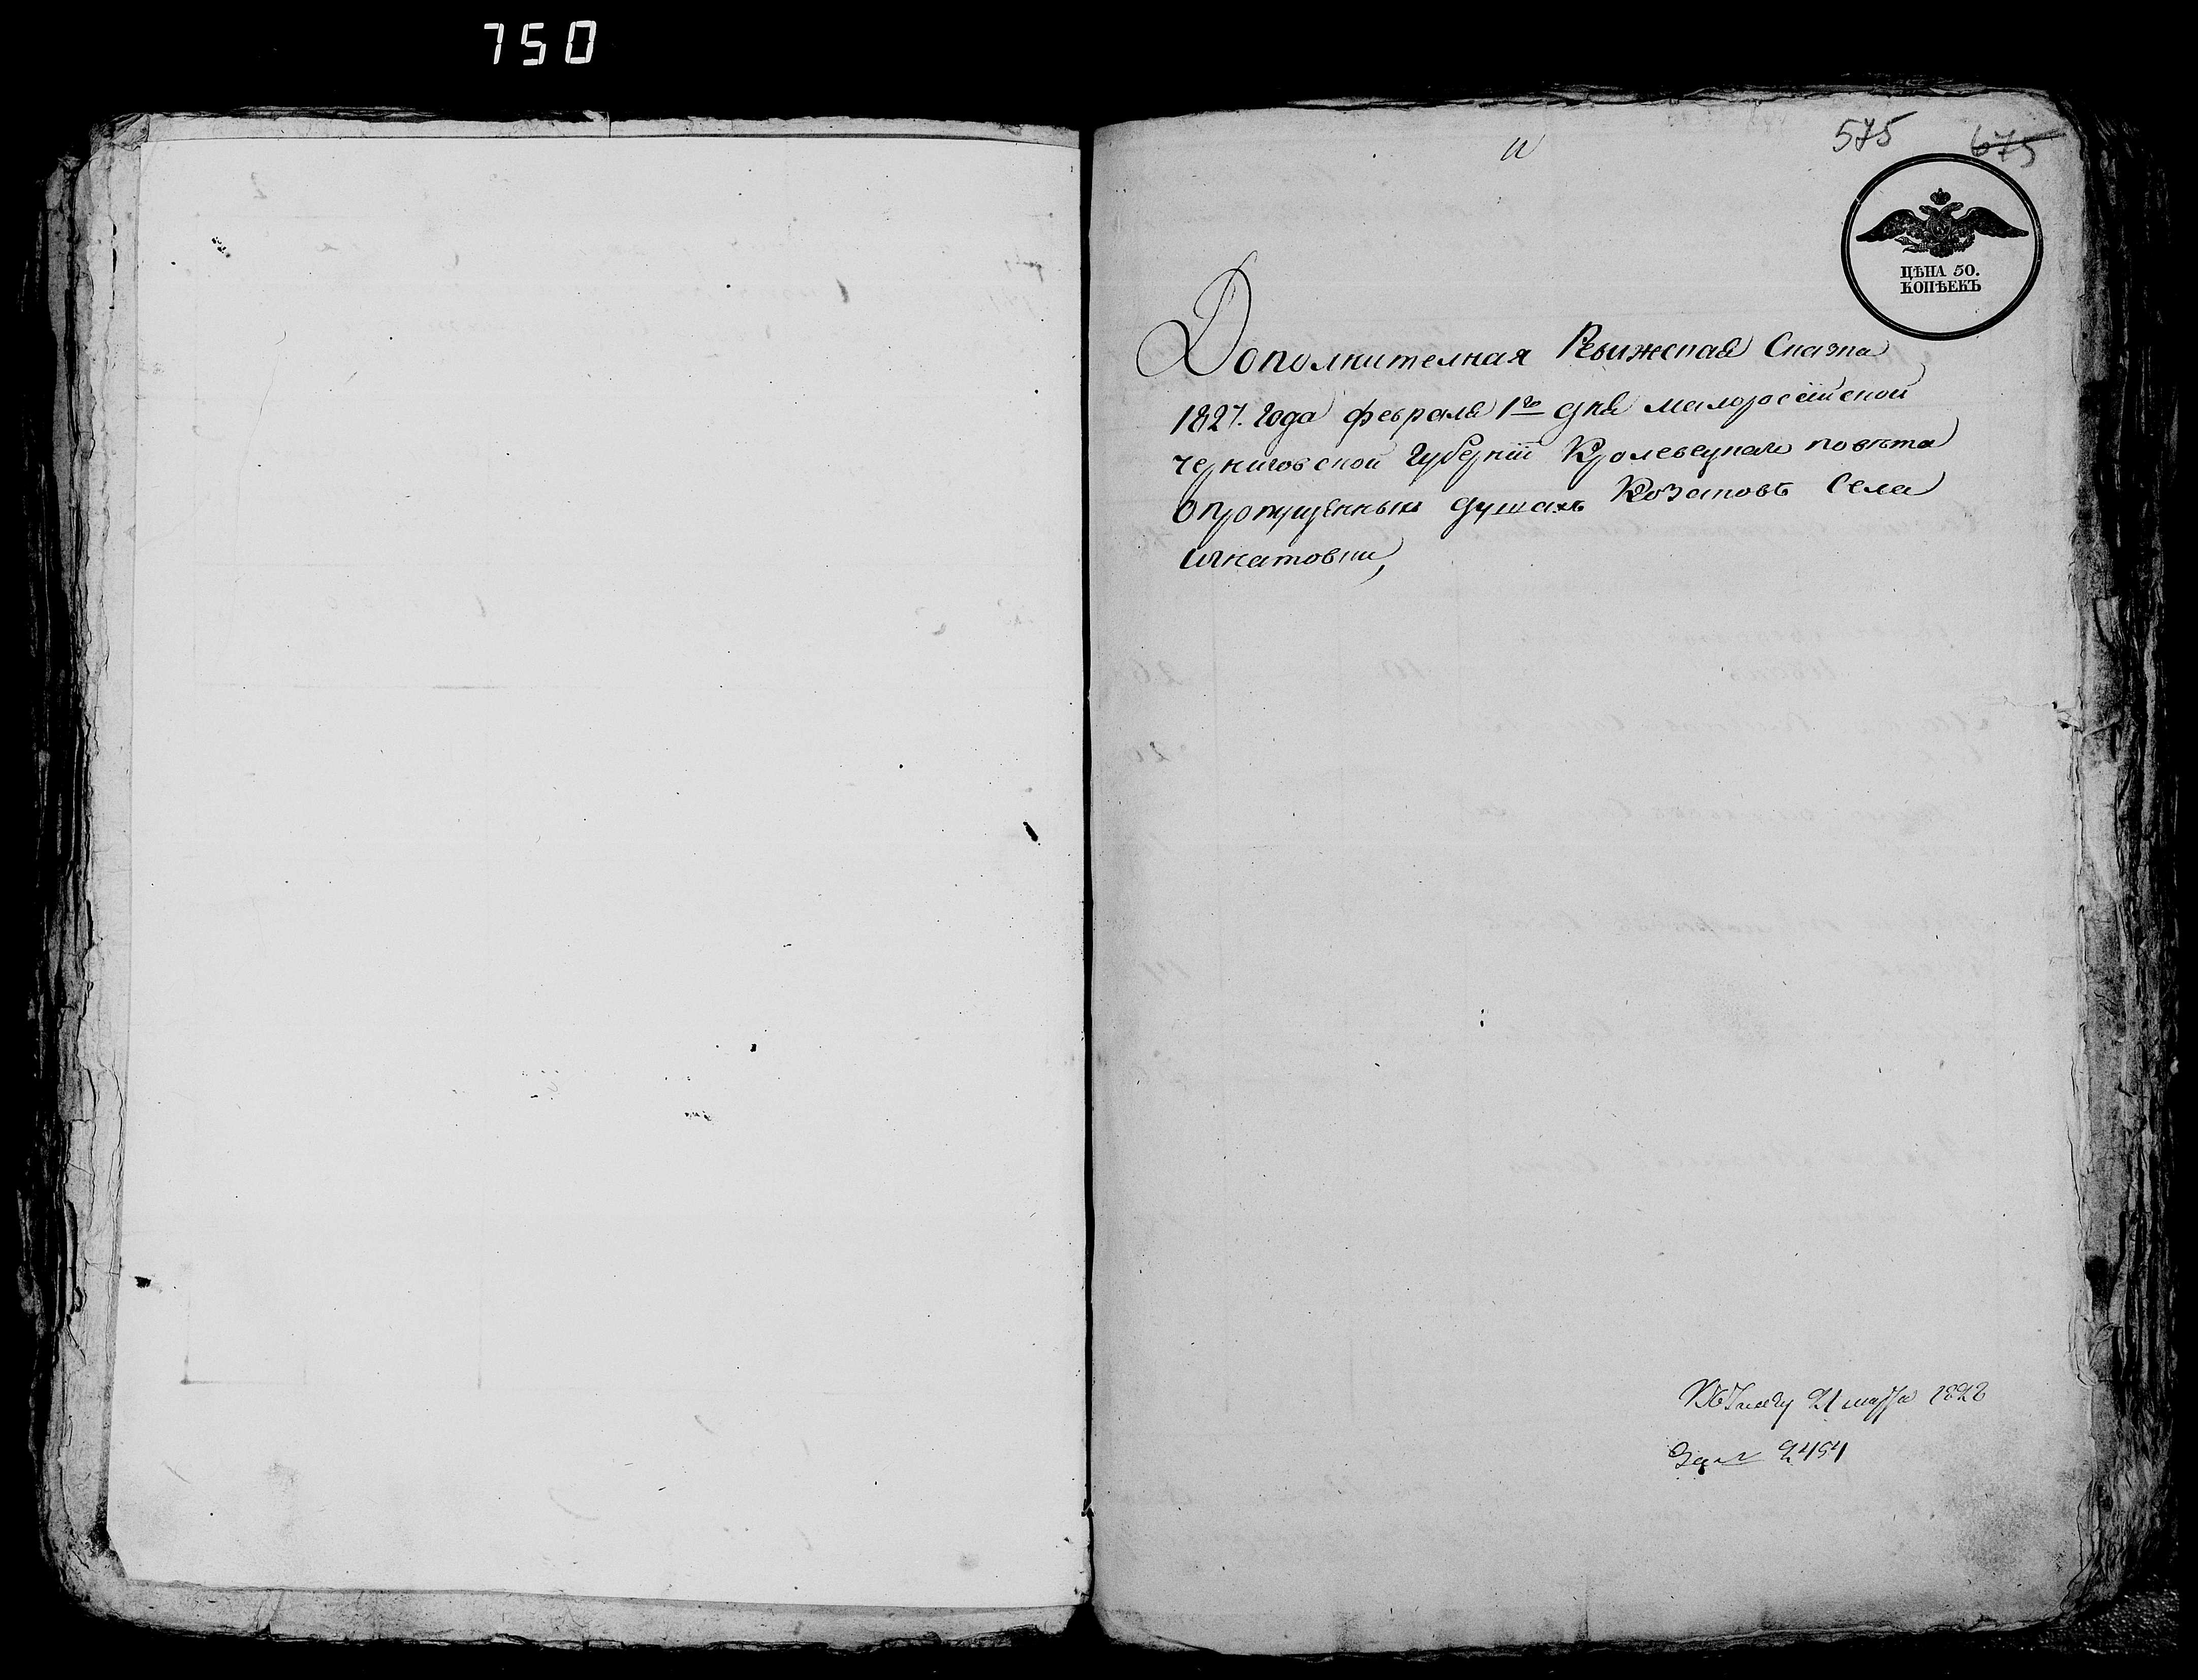 750
575 675
ЦѢНА 50.
КОПѢЕКЪ
Дополнителная Ревижская Сказка
1827. года февраля 1го дня малоросийской
черниговской губернїи Кролевецкаго повѣта
О пропущенных душахъ Козаковъ Села
игнатовки,
21 марта 1828
2454